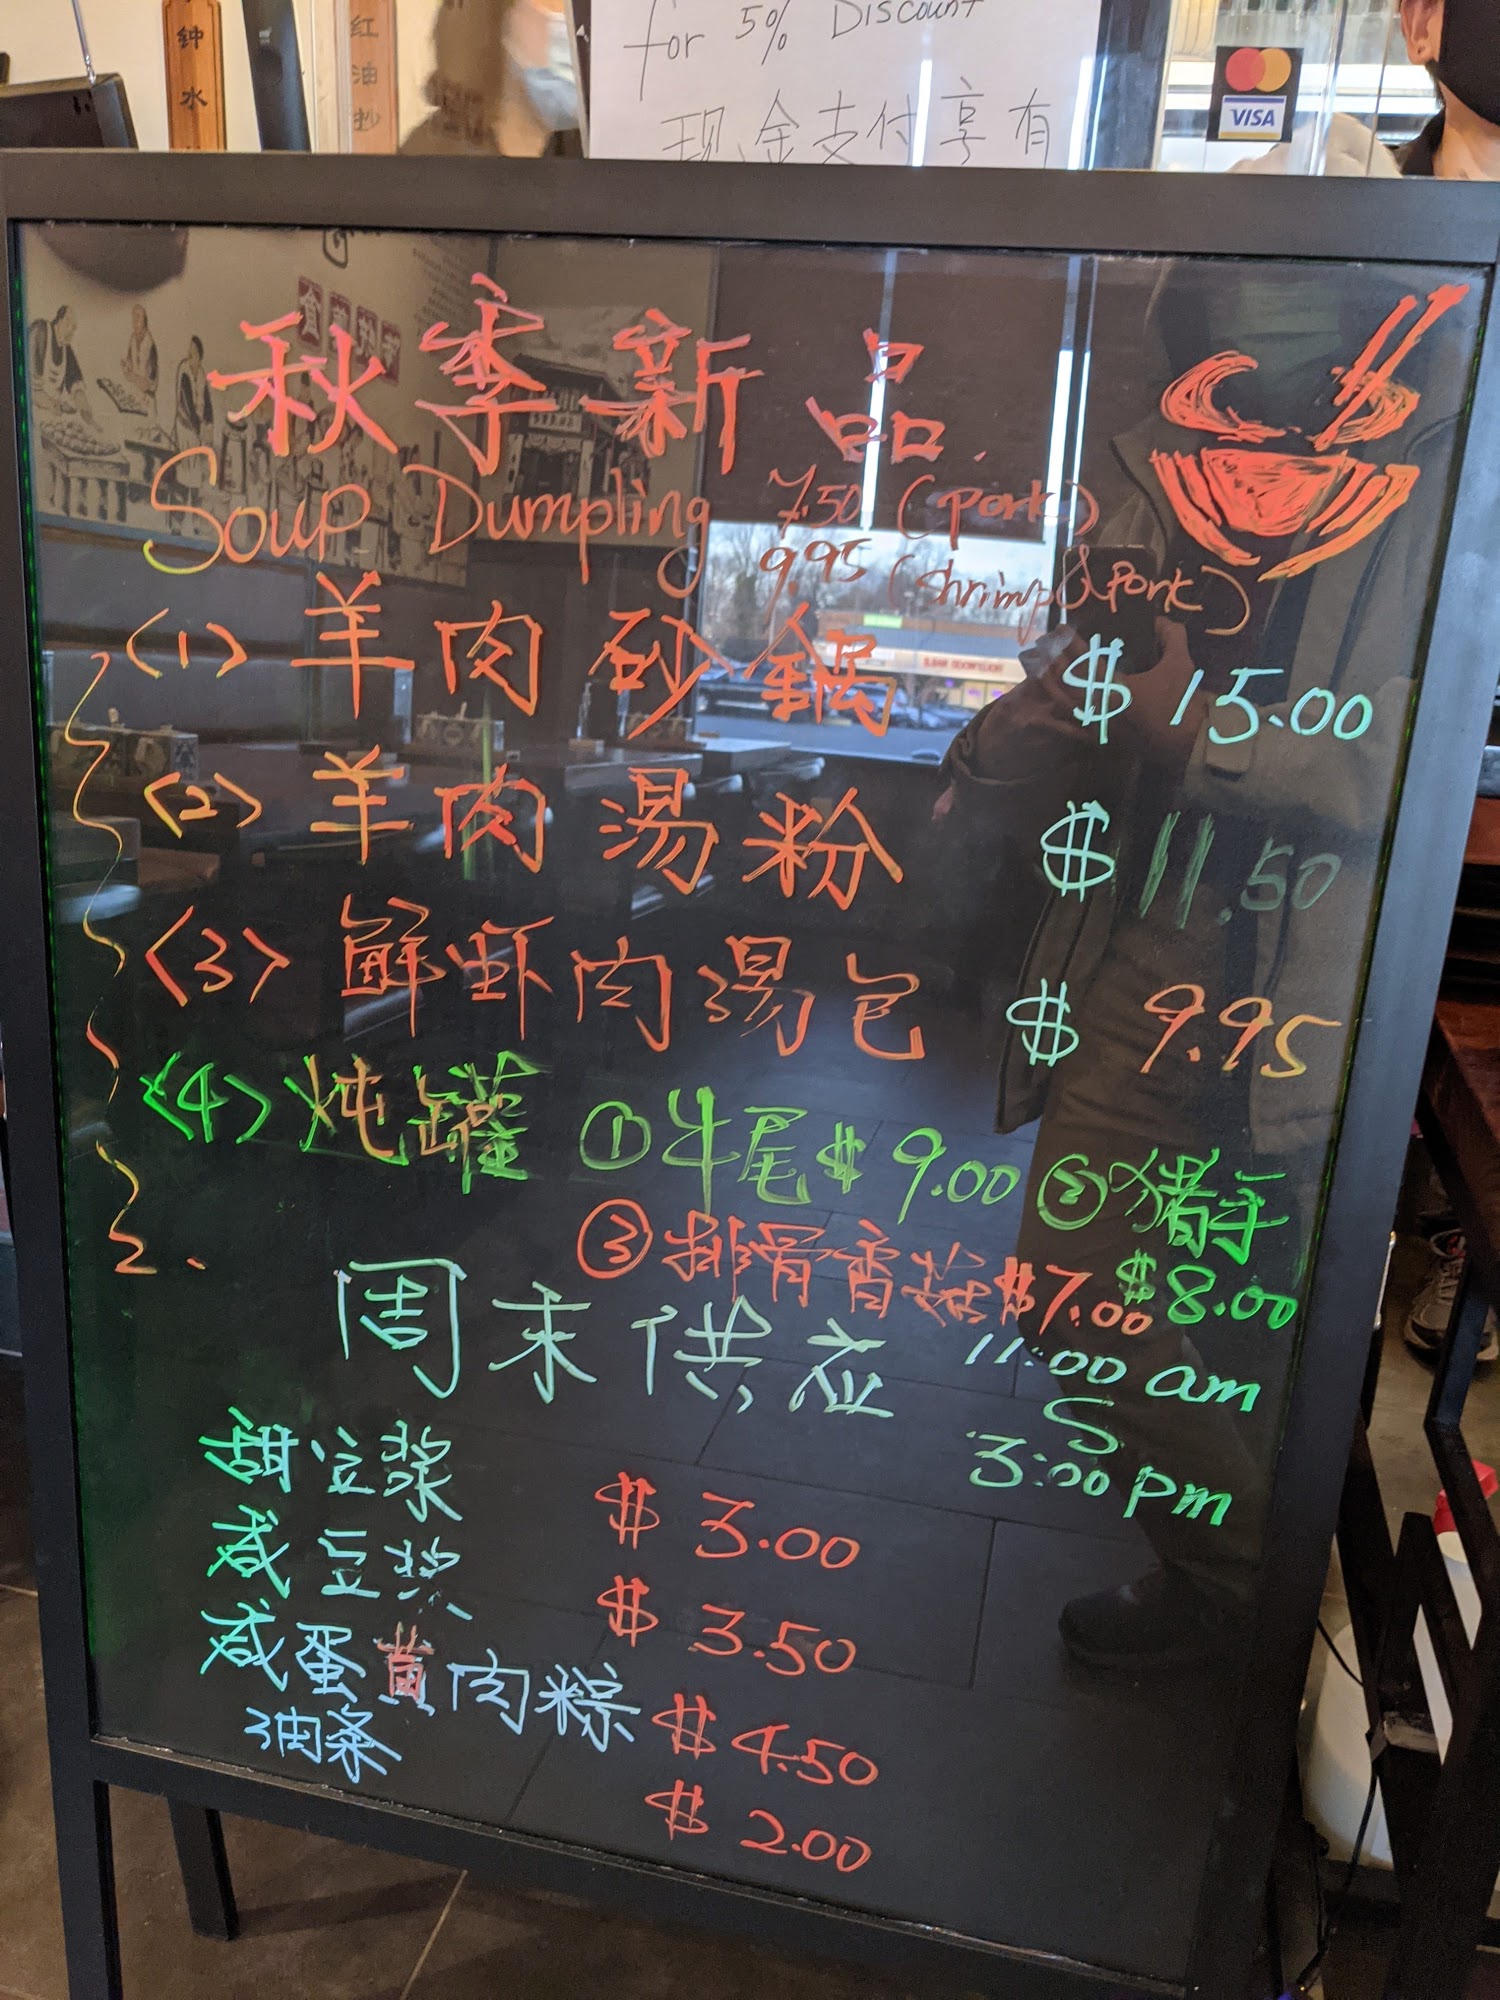 钟水
红油抄
for 5% Discount
现金支付享有
VISA
秋季新品
Soup Dumpling 7.50 (pork)
9.95 (Shrimp & pork)
(1) 羊肉砂鍋 $15.00
(2) 羊肉湯粉 $11.50
(3) 鲜虾肉湯包 $9.95
(4) 炖罐 ①牛尾 $9.00 ②猪手 $8.00
③排骨香菇 $7.00
周末供应 11:00 am
S
3:00 pm
甜豆浆 $3.00
咸豆浆 $3.50
咸蛋黄肉粽 $4.50
油条 $2.00